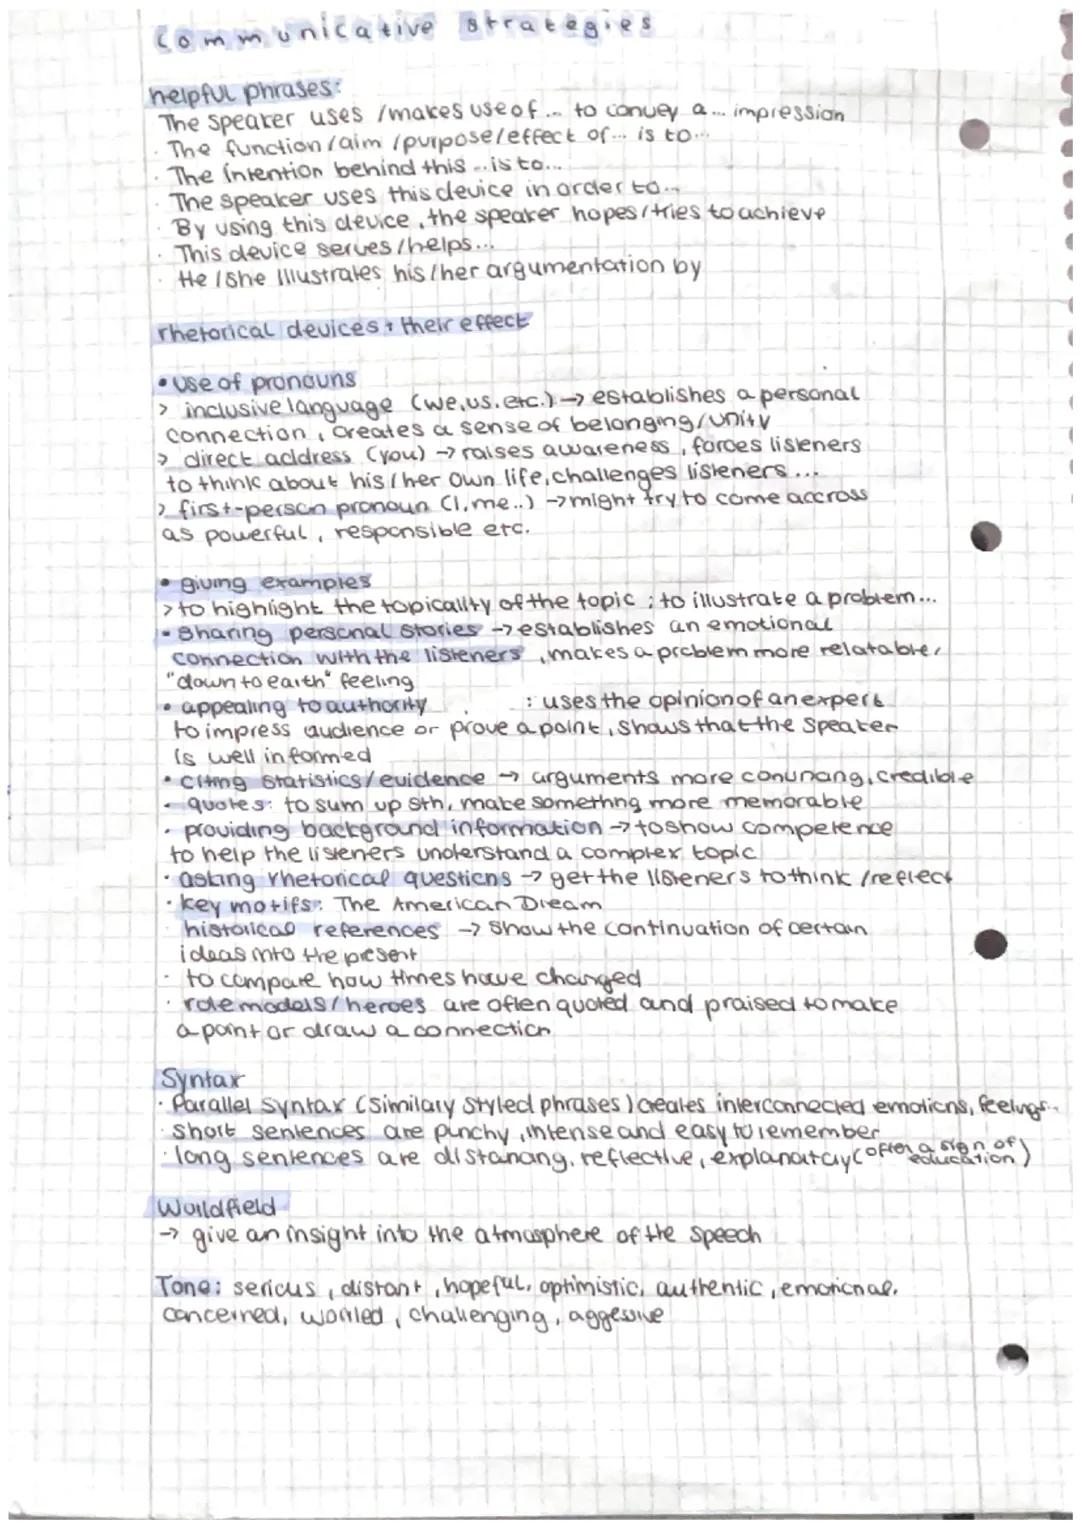 Communicative strategies
helpful phrases:
The speaker uses / makes use of ... to convey a ... impression
· The function / aim / purpose / effect of ... is to ...
· The intention behind this ... is to ...
· The speaker uses this device in order to ...
· By using this device, the speaker hopes / tries to achieve
· This device serves / helps ...
· He / She illustrates his / her argumentation by
rhetorical devices + their effect
• use of pronouns
> inclusive language (we, us, etc.) → establishes a personal
connection, creates a sense of belonging / unity
> direct address (you) → raises awareness, forces listeners
to think about his / her own life, challenges listeners ...
> first-person pronoun (I, me..) → might try to come accross
as powerful, responsible etc.
• giving examples
> to highlight the topicality of the topic ; to illustrate a problem ...
• Sharing personal stories → establishes an emotional
connection with the listeners, makes a problem more relatable,
"down to earth" feeling
• appealing to authority : uses the opinion of an expert
to impress audience or prove a point, shows that the speaker
is well informed
• citing statistics / evidence → arguments more convincing, credible
• quotes: to sum up sth, make something more memorable
• providing background information → to show competence
to help the listeners understand a complex topic
• asking rhetorical questions → get the listeners to think / reflect
• key motifs: The American Dream
historical references → show the continuation of certain
ideas into the present
· to compare how times have changed
· role models / heroes are often quoted and praised to make
a point or draw a connection
Syntax
· Parallel Syntax (similary styled phrases) creates interconnected emotions, feelings..
· short sentences are punchy, intense and easy to remember
· long sentences are distancing, reflective, explanatory (often a sign of education)
Worldfield
→ give an insight into the atmosphere of the speech
Tone: serious, distant, hopeful, optimistic, authentic, emotional,
concerned, worried, challenging, aggessive